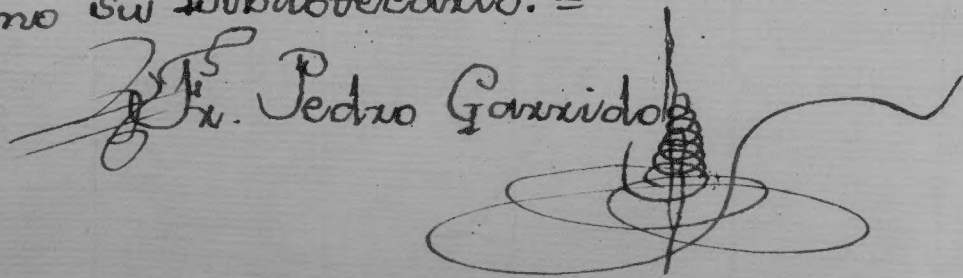 no su bibliotecario. =
Fr. Pedro Garrido